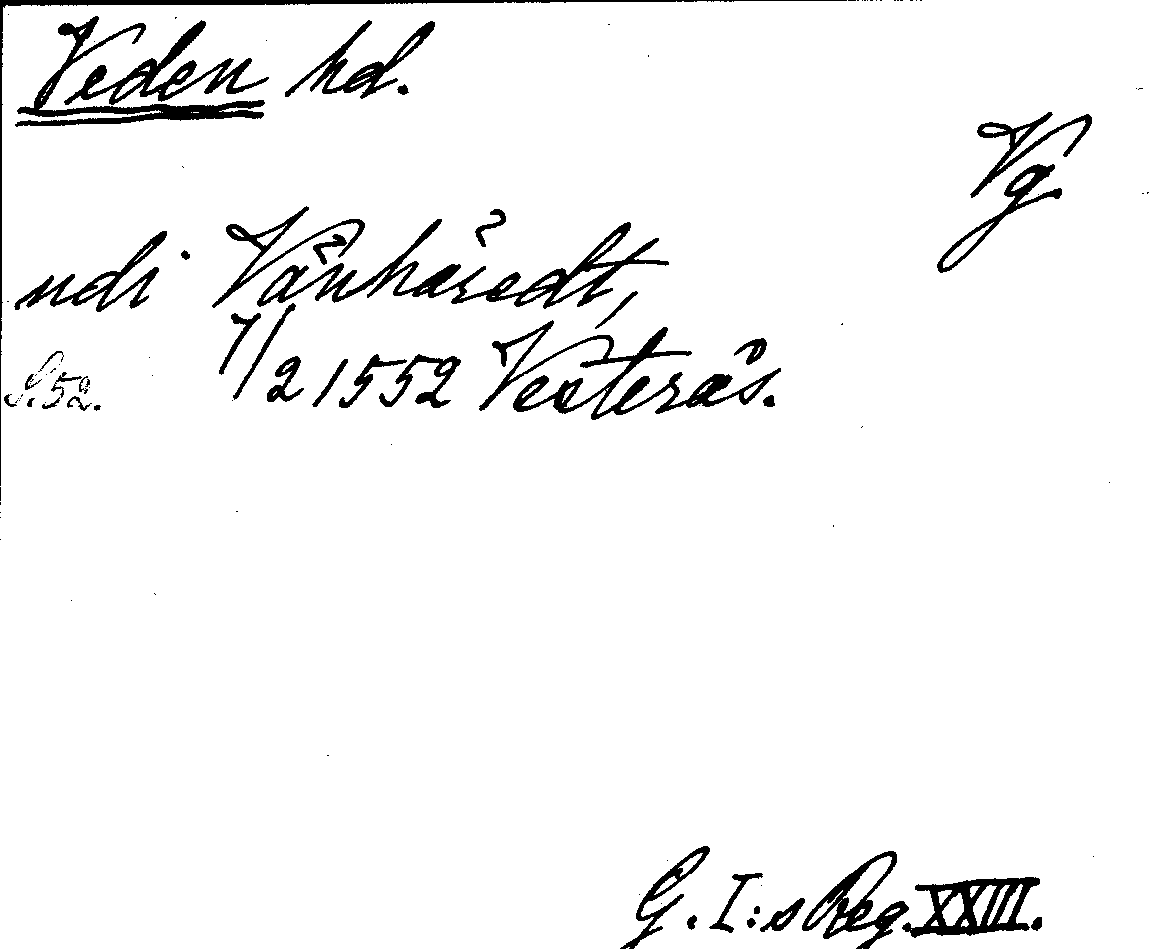 Veden hd.
Vg.
udi Vånhäredt,
S. 52. 7/2 1552 Vesterås.
G. I:s Reg. XXIII.